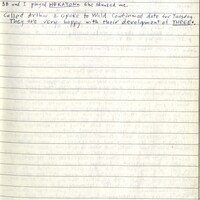 BB and I played HEKATOMB She thrashed me.
Called Arthur & spoke to Wild. Confirmed date for Tuesday
They are very happy with their development of THREE.